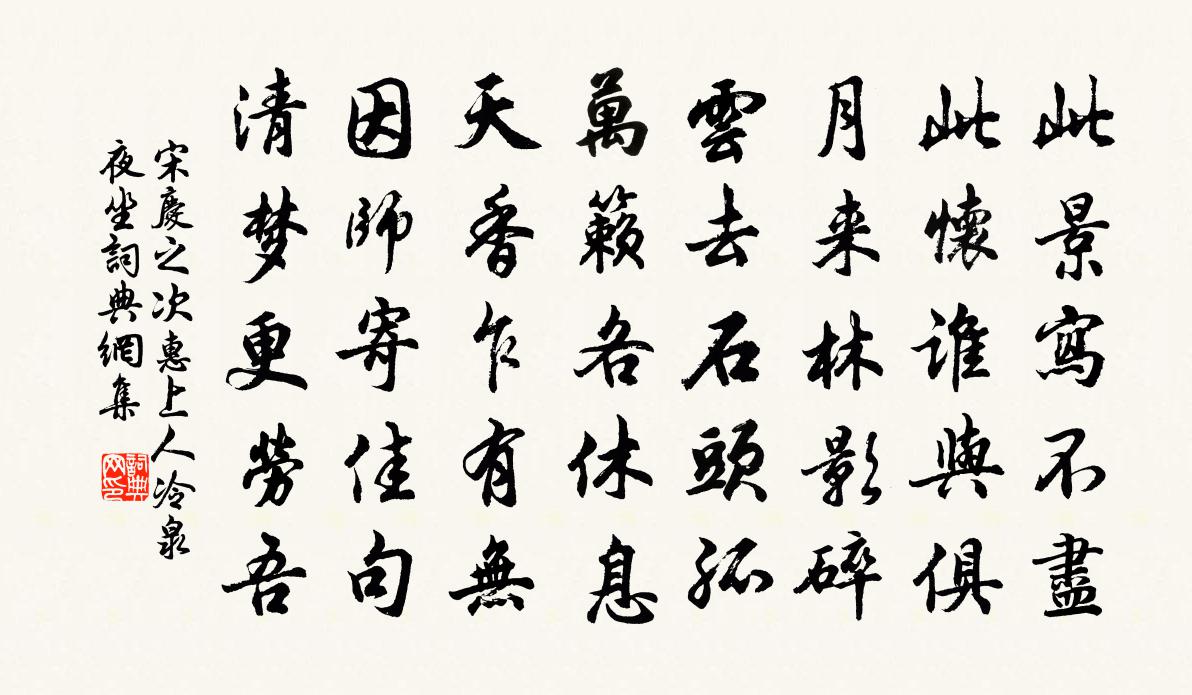 此景寫不盡
此懷誰與俱
月来林影碎
雲去石頭孤
萬籟各休息
天香乍有無
因師寄佳句
清梦更勞吾
宋慶之次惠上人冷泉
夜坐詞典網集
詞典网印